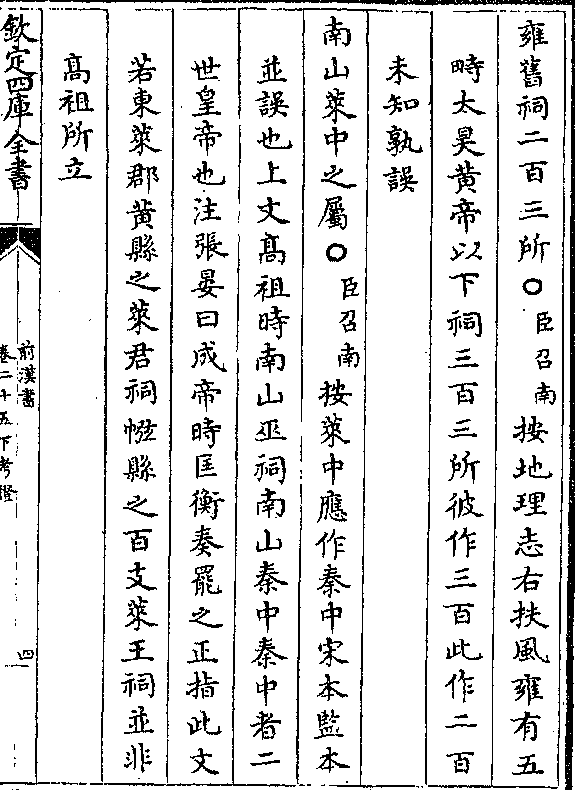 雍舊祠二百三所○臣召南按地理志右扶風雍有五
畤太昊黃帝以下祠三百三所彼作三百此作二百
未知孰誤
南山萊中之屬○臣召南按萊中應作秦中宋本監本
並誤也上文髙祖時南山巫祠南山秦中秦中者二
世皇帝也注張晏曰成帝時匡衡奏罷之正指此文
若東萊郡黃縣之萊君祠㡉縣之百支萊王祠並非
髙祖所立
欽定四庫全書
前漢書
卷二十五下考證
四